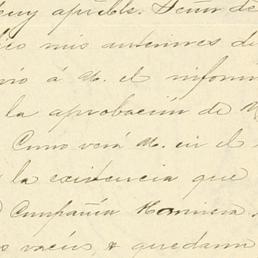 muy apreble. Señor de
mis anteriores de
á V. el inform
la aprobación de
Como verá V. en el
la existencia que
Compañía Harinera
vacíos, & quedam